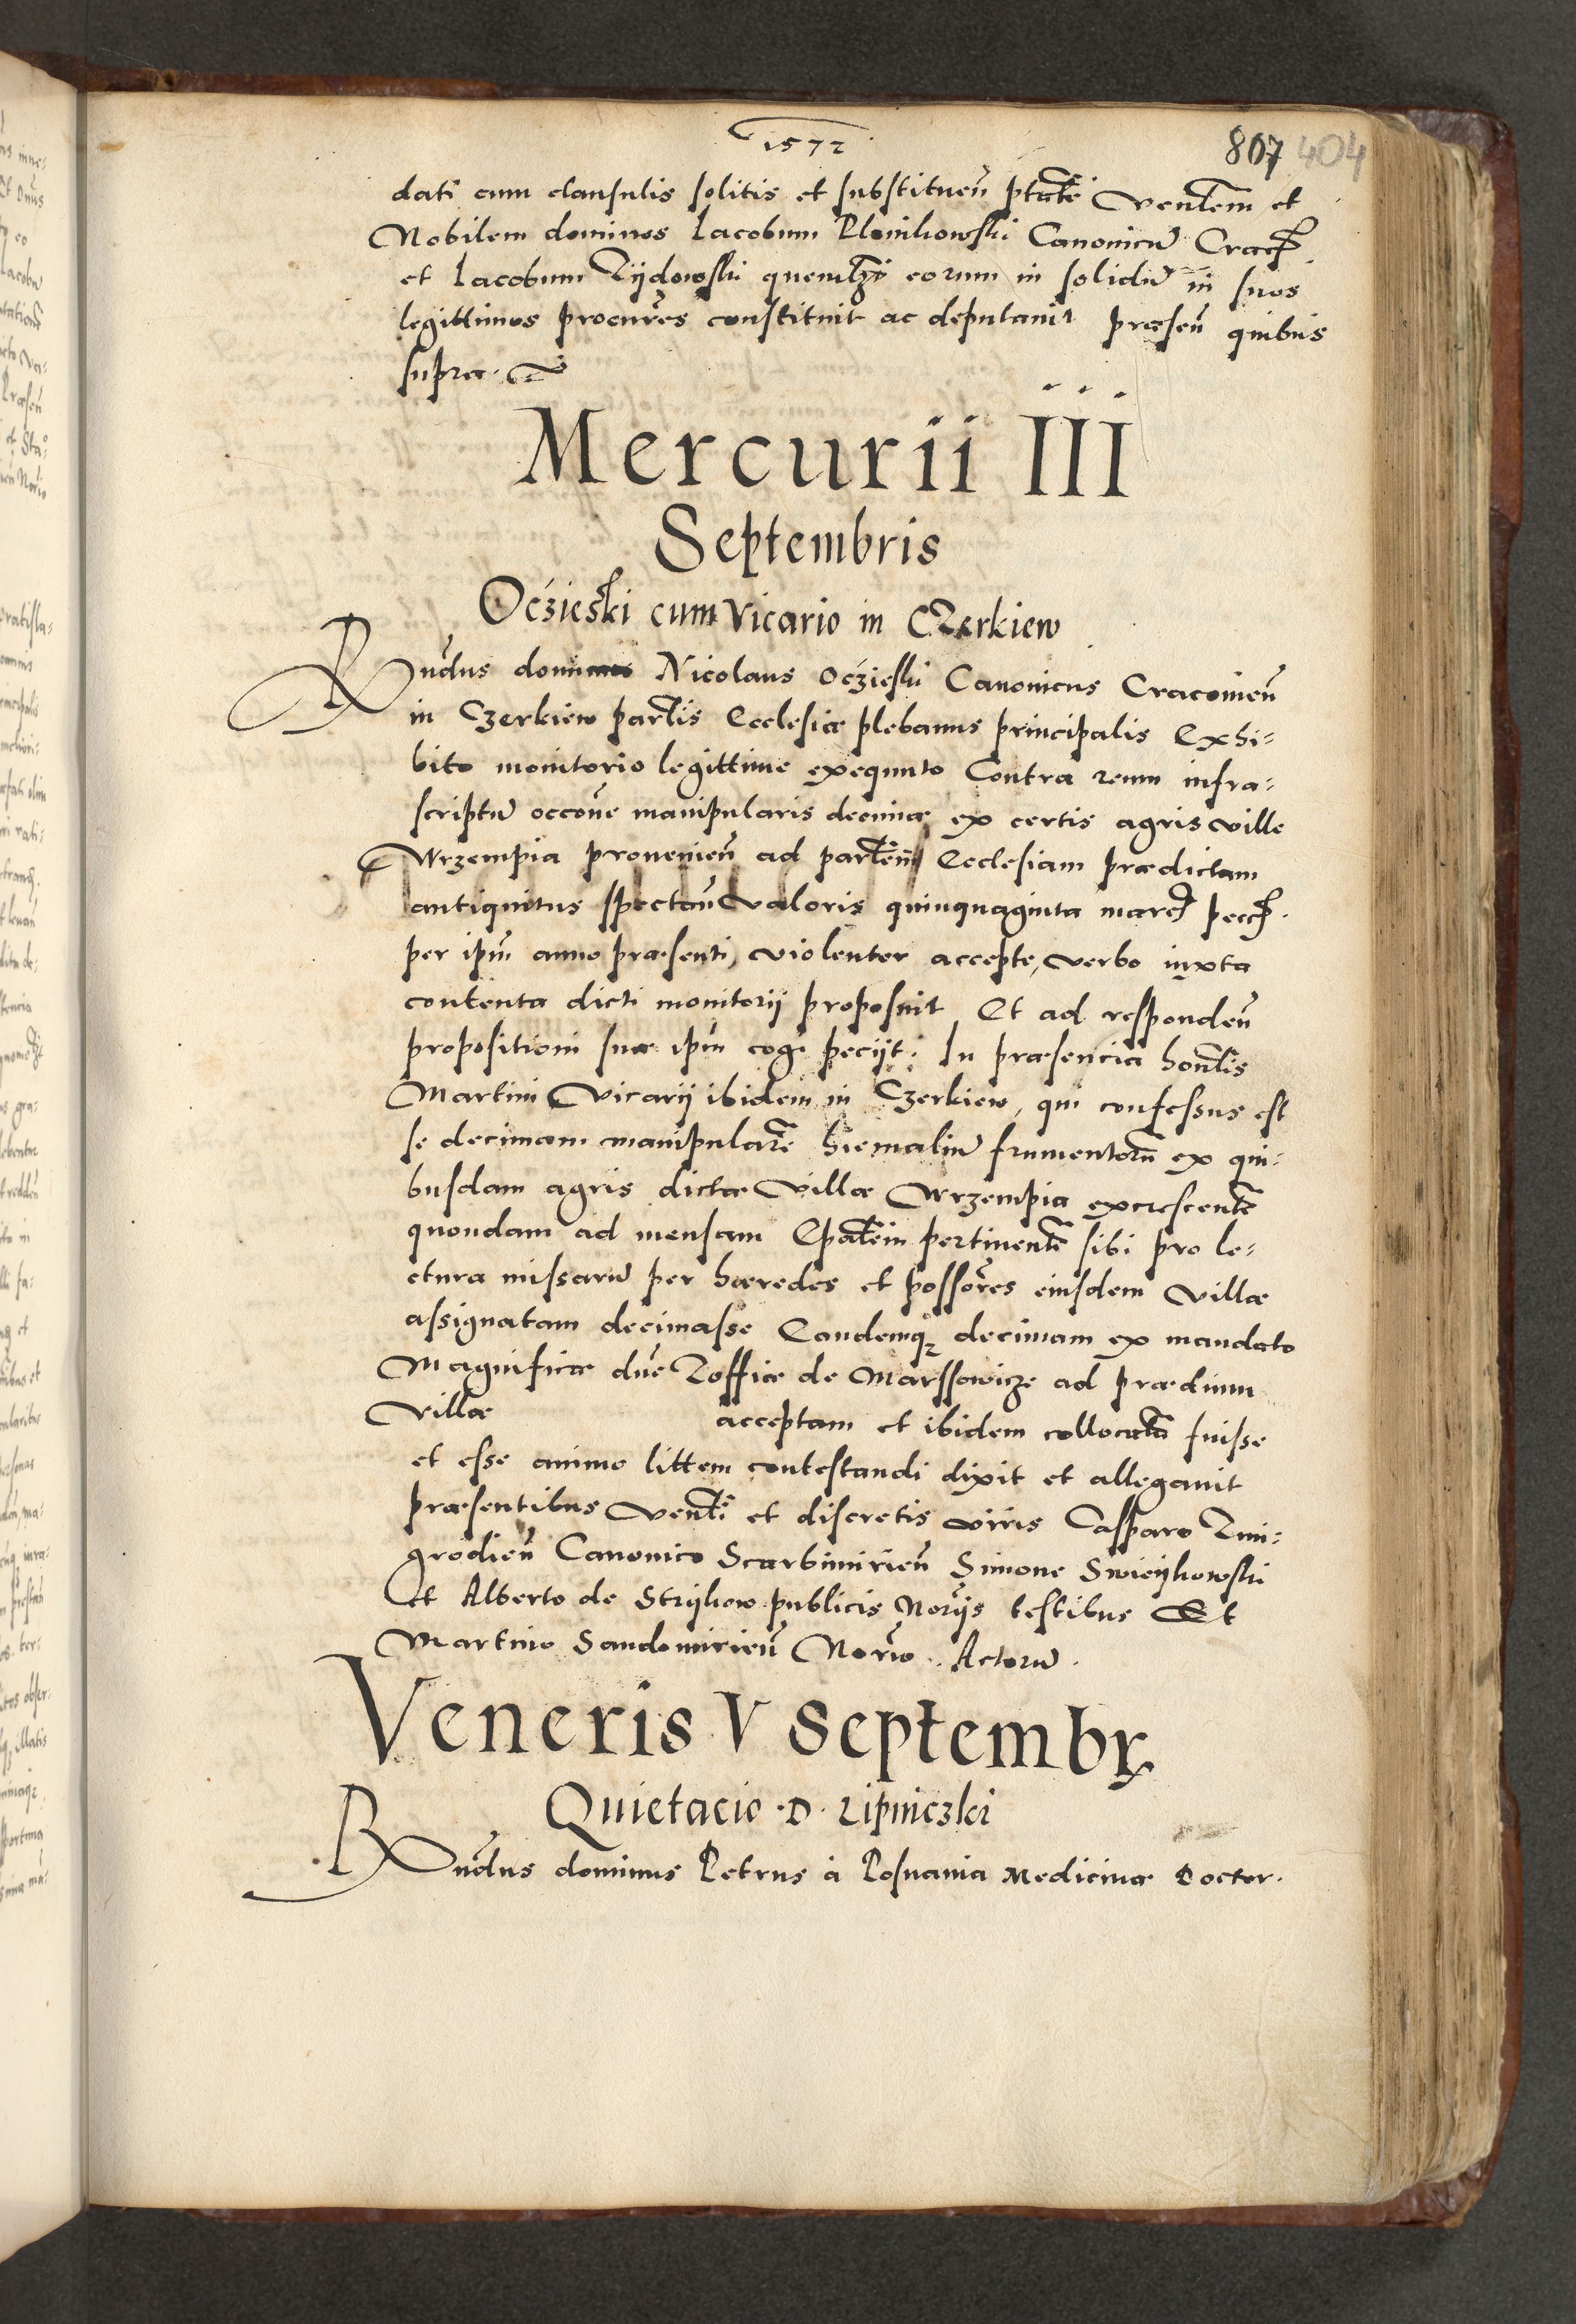 1572
807 404
dati cum clausulis solitis et substituen̄ ptātē Venl̄em et
Nobilem dominos Iacobum Plonihowski Canonicū Cracȝ
et Iacobum Zijdowski queml̄ȝ eorum in solidū in suos
legittimos procur̄es constituit ac deputauit præsen̄ quibus
supra.
Mercurii III
Septembris
Oćzieski cum Vicario in Czerkiew
Rn̄dus dominus Nicolaus Oćzieski Canonicus Cracouien̄
in Czerkiew parl̄is Ecclesiæ plebanus principalis Exhi-
bito monitorio legittime exequuto Contra reum infra-
scriptū occōne manipularis decimæ ex certis agris ville
Wrzempia prouenien̄ ad parl̄em Ecclesiam prædictam
antiquitus spectan̄ valoris quinquaginta marc̄ pecȝ.
per ipm̄ anno præsenti, violenter accepte, verbo iuxta
contenta dicti monitorij proposuit Et ad responden̄
propositioni suæ ipm̄ cogi pecijt. In præsencia honl̄is
Martini Vicarij ibidem in Czerkiew, qui confessus est
se decimam manipularē hiemaliū frumentorū ex qui-
busdam agris dictæ Villæ Wrzempia excrescentē
quondam ad mensam Epal̄em pertinentē sibi pro le-
ctura missarū per hæredes et possōres eiusdem Villæ
assignatam decimasse Eandemqꝫ decimam ex mandato
Magnificæ dn̄e Zoffiæ de Marssowicze ad prædium
Villæ acceptam et ibidem collocatā fuisse
et esse animo littem contestandi dixit et allegauit
præsentibus Venl̄i et discretis viris Casparo Zmi-
grodien̄ Canonico Scarbimirien̄ Simone Swieijhowski
Et Alberto de Strijkow publicis Nor̄ijs testibus Et
Martino Sandomirien̄ Nor̄io. Actorū.
Veneris V Septembr.
Quietacio .D. Lipniczki
Rn̄dus dominus Petrus à Posnania Medicinæ Doctor.